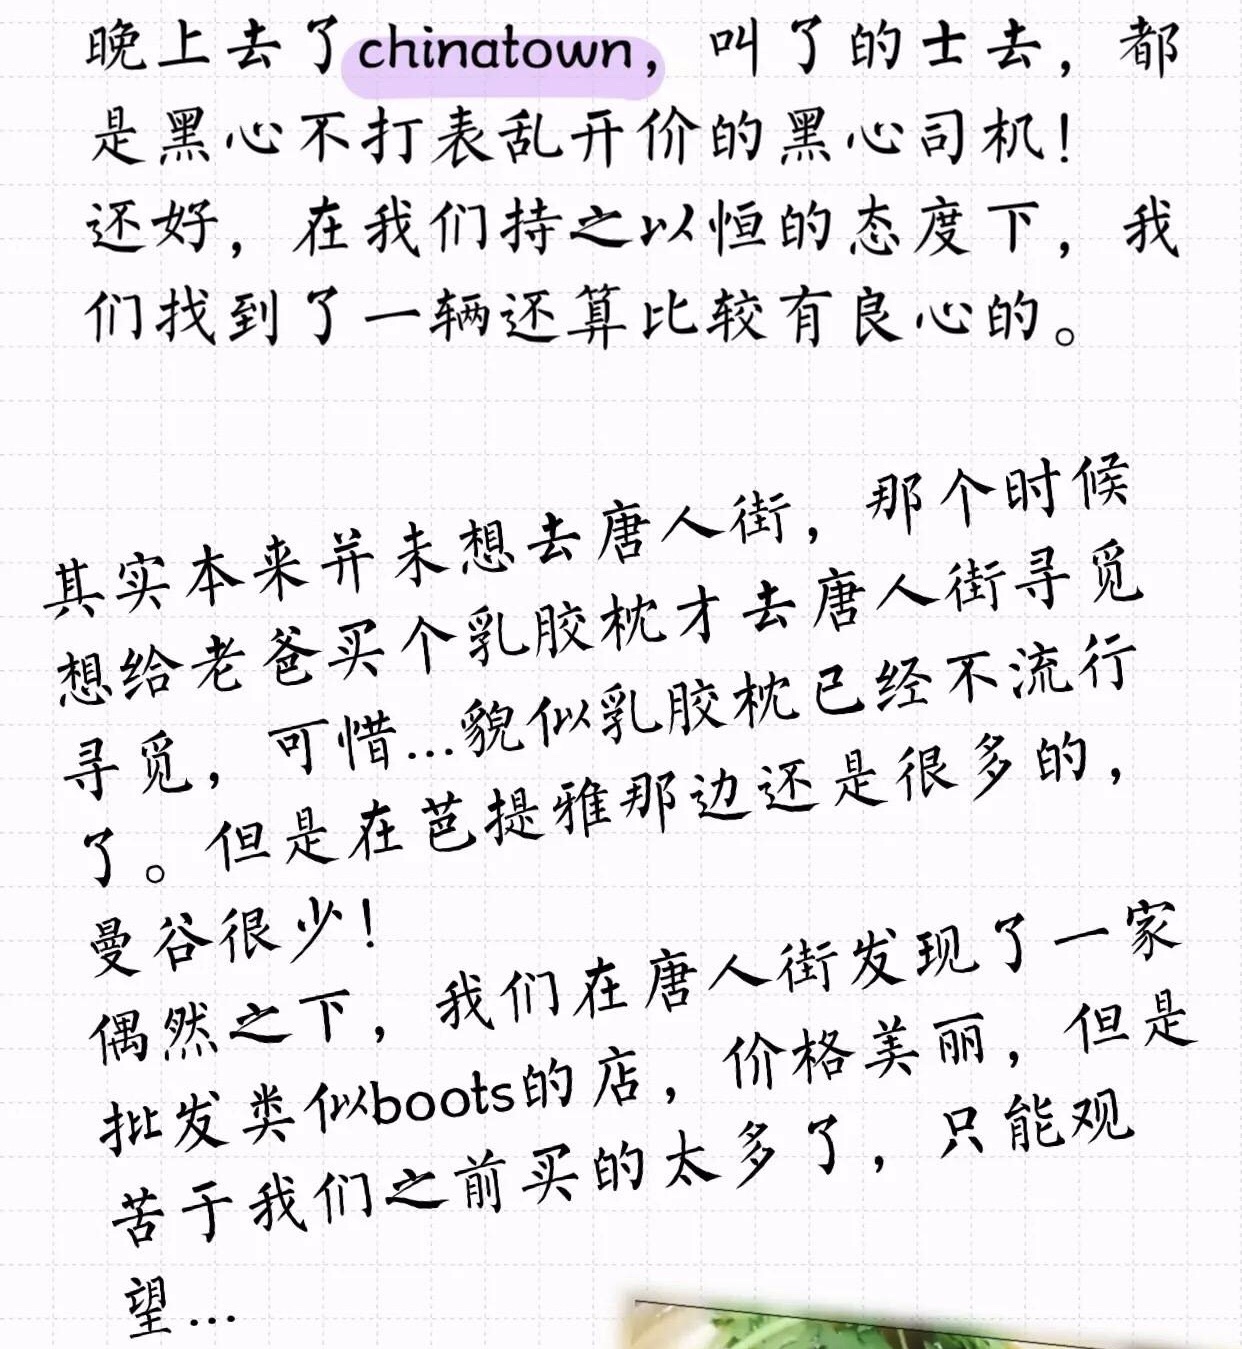 晚上去了chinatown，叫了的士去，都
是黑心不打表乱开价的黑心司机！
还好，在我们持之以恒的态度下，我
们找到了一辆还算比较有良心的。
其实本来并未想去唐人街，那个时候
想给老爸买个乳胶枕才去唐人街寻觅
寻觅，可惜...貌似乳胶枕已经不流行
了。但是在芭提雅那边还是很多的，
曼谷很少！
偶然之下，我们在唐人街发现了一家
批发类似boots的店，价格美丽，但是
苦于我们之前买的太多了，只能观
望...